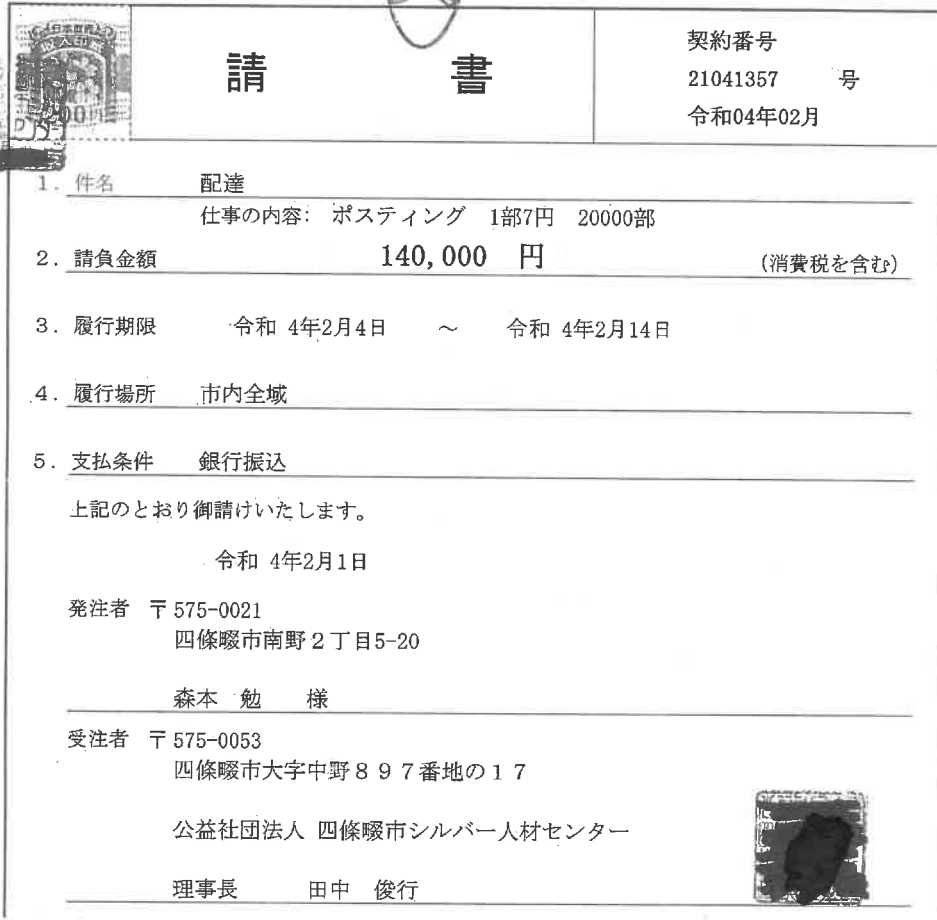 日本政府
収入印紙
請 書
契約番号
21041357 号
令和04年02月
1. 件名 配達
仕事の内容: ポスティング 1部7円 20000部
2. 請負金額 140,000 円 (消費税を含む)
3. 履行期限 令和 4年2月4日 ～ 令和 4年2月14日
4. 履行場所 市内全域
5. 支払条件 銀行振込
上記のとおり御請けいたします。
令和 4年2月1日
発注者 〒575-0021
四條畷市南野２丁目5-20
森本 勉 様
受注者 〒575-0053
四條畷市大字中野８９７番地の１７
公益社団法人 四條畷市シルバー人材センター
理事長 田中 俊行